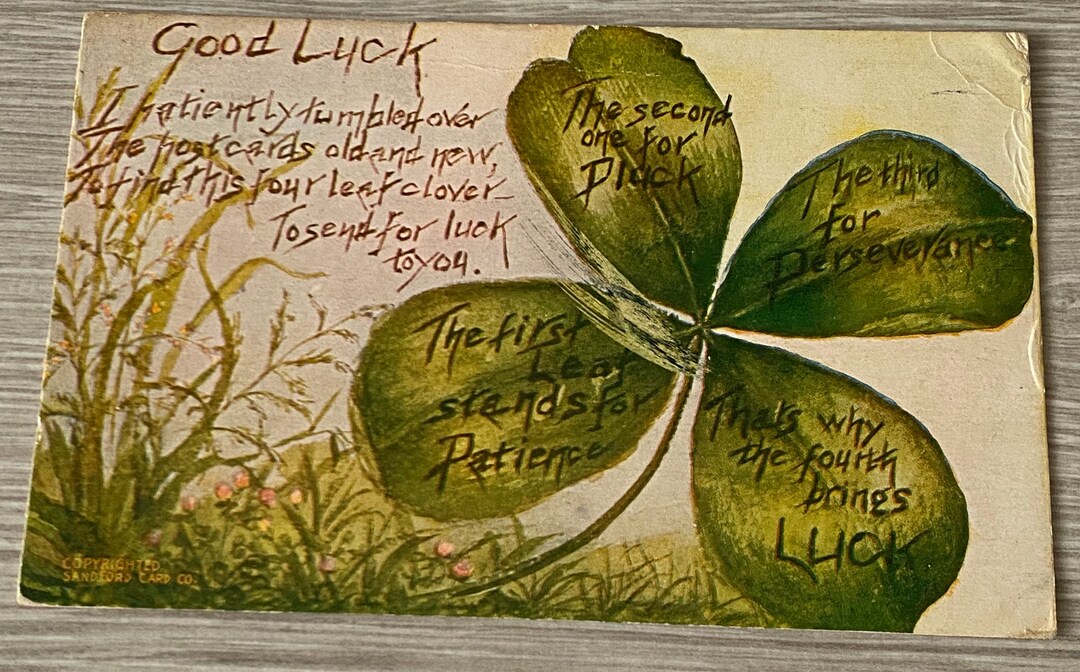 Good Luck
I patiently tumbled over
The postcards old and new,
To find this four leaf clover
To send for luck
to you.
The first
Leaf
stands for
Patience
The second
one for
Pluck
The third
for
Perseverance
Thats why
the fourth
brings
LUCK
COPYRIGHTED
SANDFORD CARD CO.